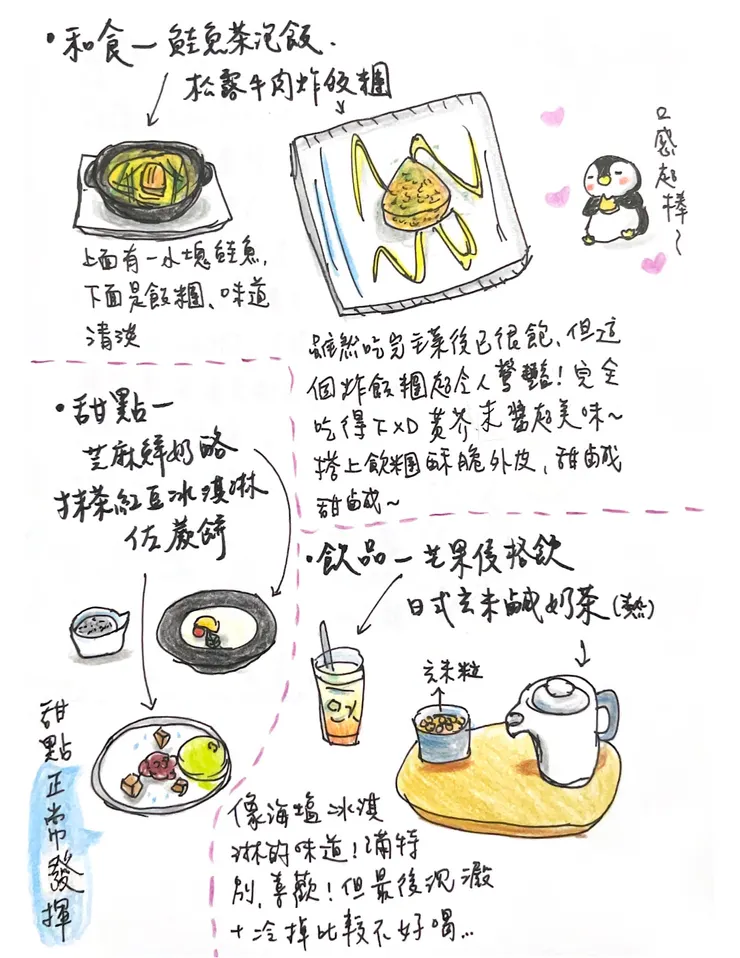 •和食一鮭魚茶泡飯.
松露牛肉炸飯糰
口感超棒～
上面有一小塊鮭魚,
下面是飯糰、味道
清淡
雖然吃完主菜後已很飽,但這
個炸飯糰超令人驚豔!完全
吃得下XD 黃芥末醬超美味～
搭上飯糰酥脆外皮,甜鹹
甜鹹～
•甜點一
芝麻鮮奶酪
抹茶紅豆冰淇淋
佐蕨餅
甜點正常發揮
•飲品一芒果優格飲
日式玄米鹹奶茶(熱)
玄米粒
像海塩冰淇
淋的味道!滿特
別,喜歡!但最後沉澱
+冷掉比較不好喝...